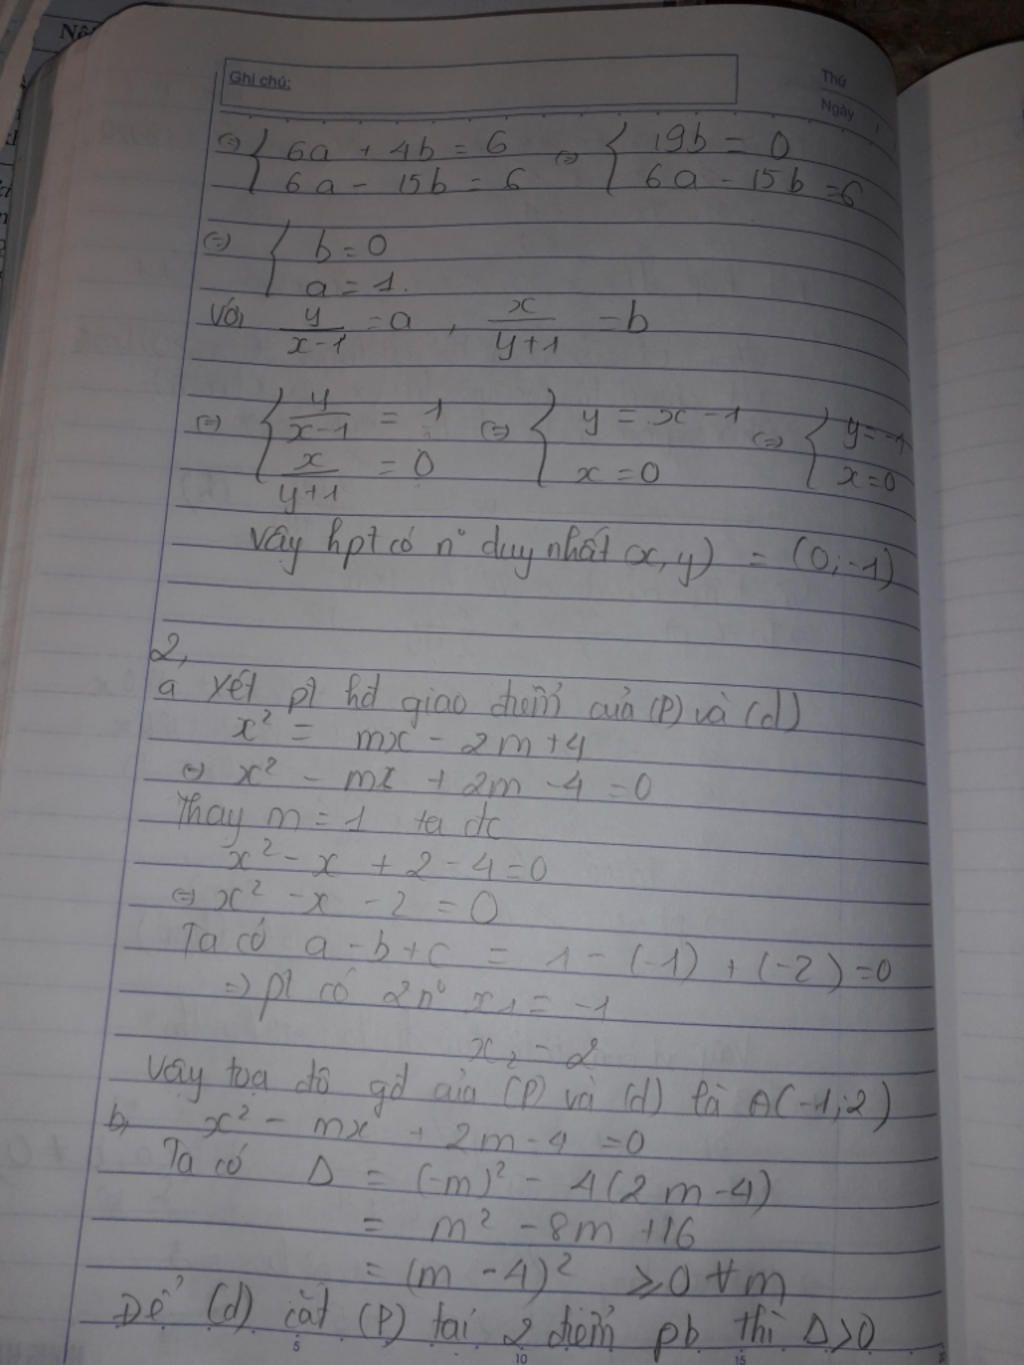 Ghi chú:
Thứ
Ngày
(=) { 6a + 4b = 6 (=) { 19b = 0
6a - 15b = 6 6a - 15b = 6
(=) { b = 0
a = 1.
Với y/(x-1) = a, x/(y+1) = b
(=) { y/(x-1) = 1 (=) { y = x - 1 (=) { y = -1
x/(y+1) = 0 x = 0 x = 0
Vậy hpt có n° duy nhất (x, y) = (0; -1)
2,
a Xét pt hđ giao điểm của (P) và (d)
x² = mx - 2m + 4
(=) x² - mx + 2m - 4 = 0
Thay m = 1 ta đc
x² - x + 2 - 4 = 0
(=) x² - x - 2 = 0
Ta có a - b + c = 1 - (-1) + (-2) = 0
=) pt có 2 n° x₁ = -1
x₂ = 2
Vậy toạ độ gđ của (P) và (d) là A(-1; 2)
b, x² - mx + 2m - 4 = 0
Ta có Δ = (-m)² - 4(2m - 4)
= m² - 8m + 16
= (m - 4)² ≥ 0 ∀m
Để (d) cắt (P) tại 2 điểm pb thì Δ > 0
5 10 15